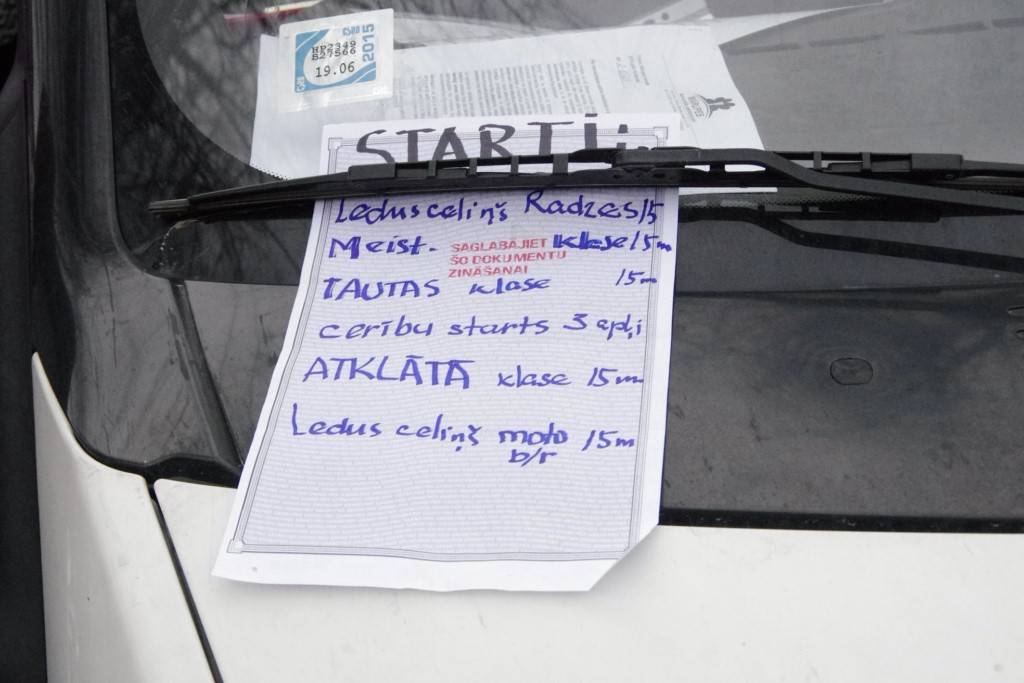 CSDD
2015
HP2349
B27566
19.06
STARTI!
Ledusceliņš Radzes 15
Meist. klase 15m
SAGLABĀJIET
ŠO DOKUMENTU
ZINĀŠANAI
TAUTAS klase 15m
cerību starts 3 apļi
ATKLĀTĀ klase 15m
Ledus celiņš moto 15m
b/r